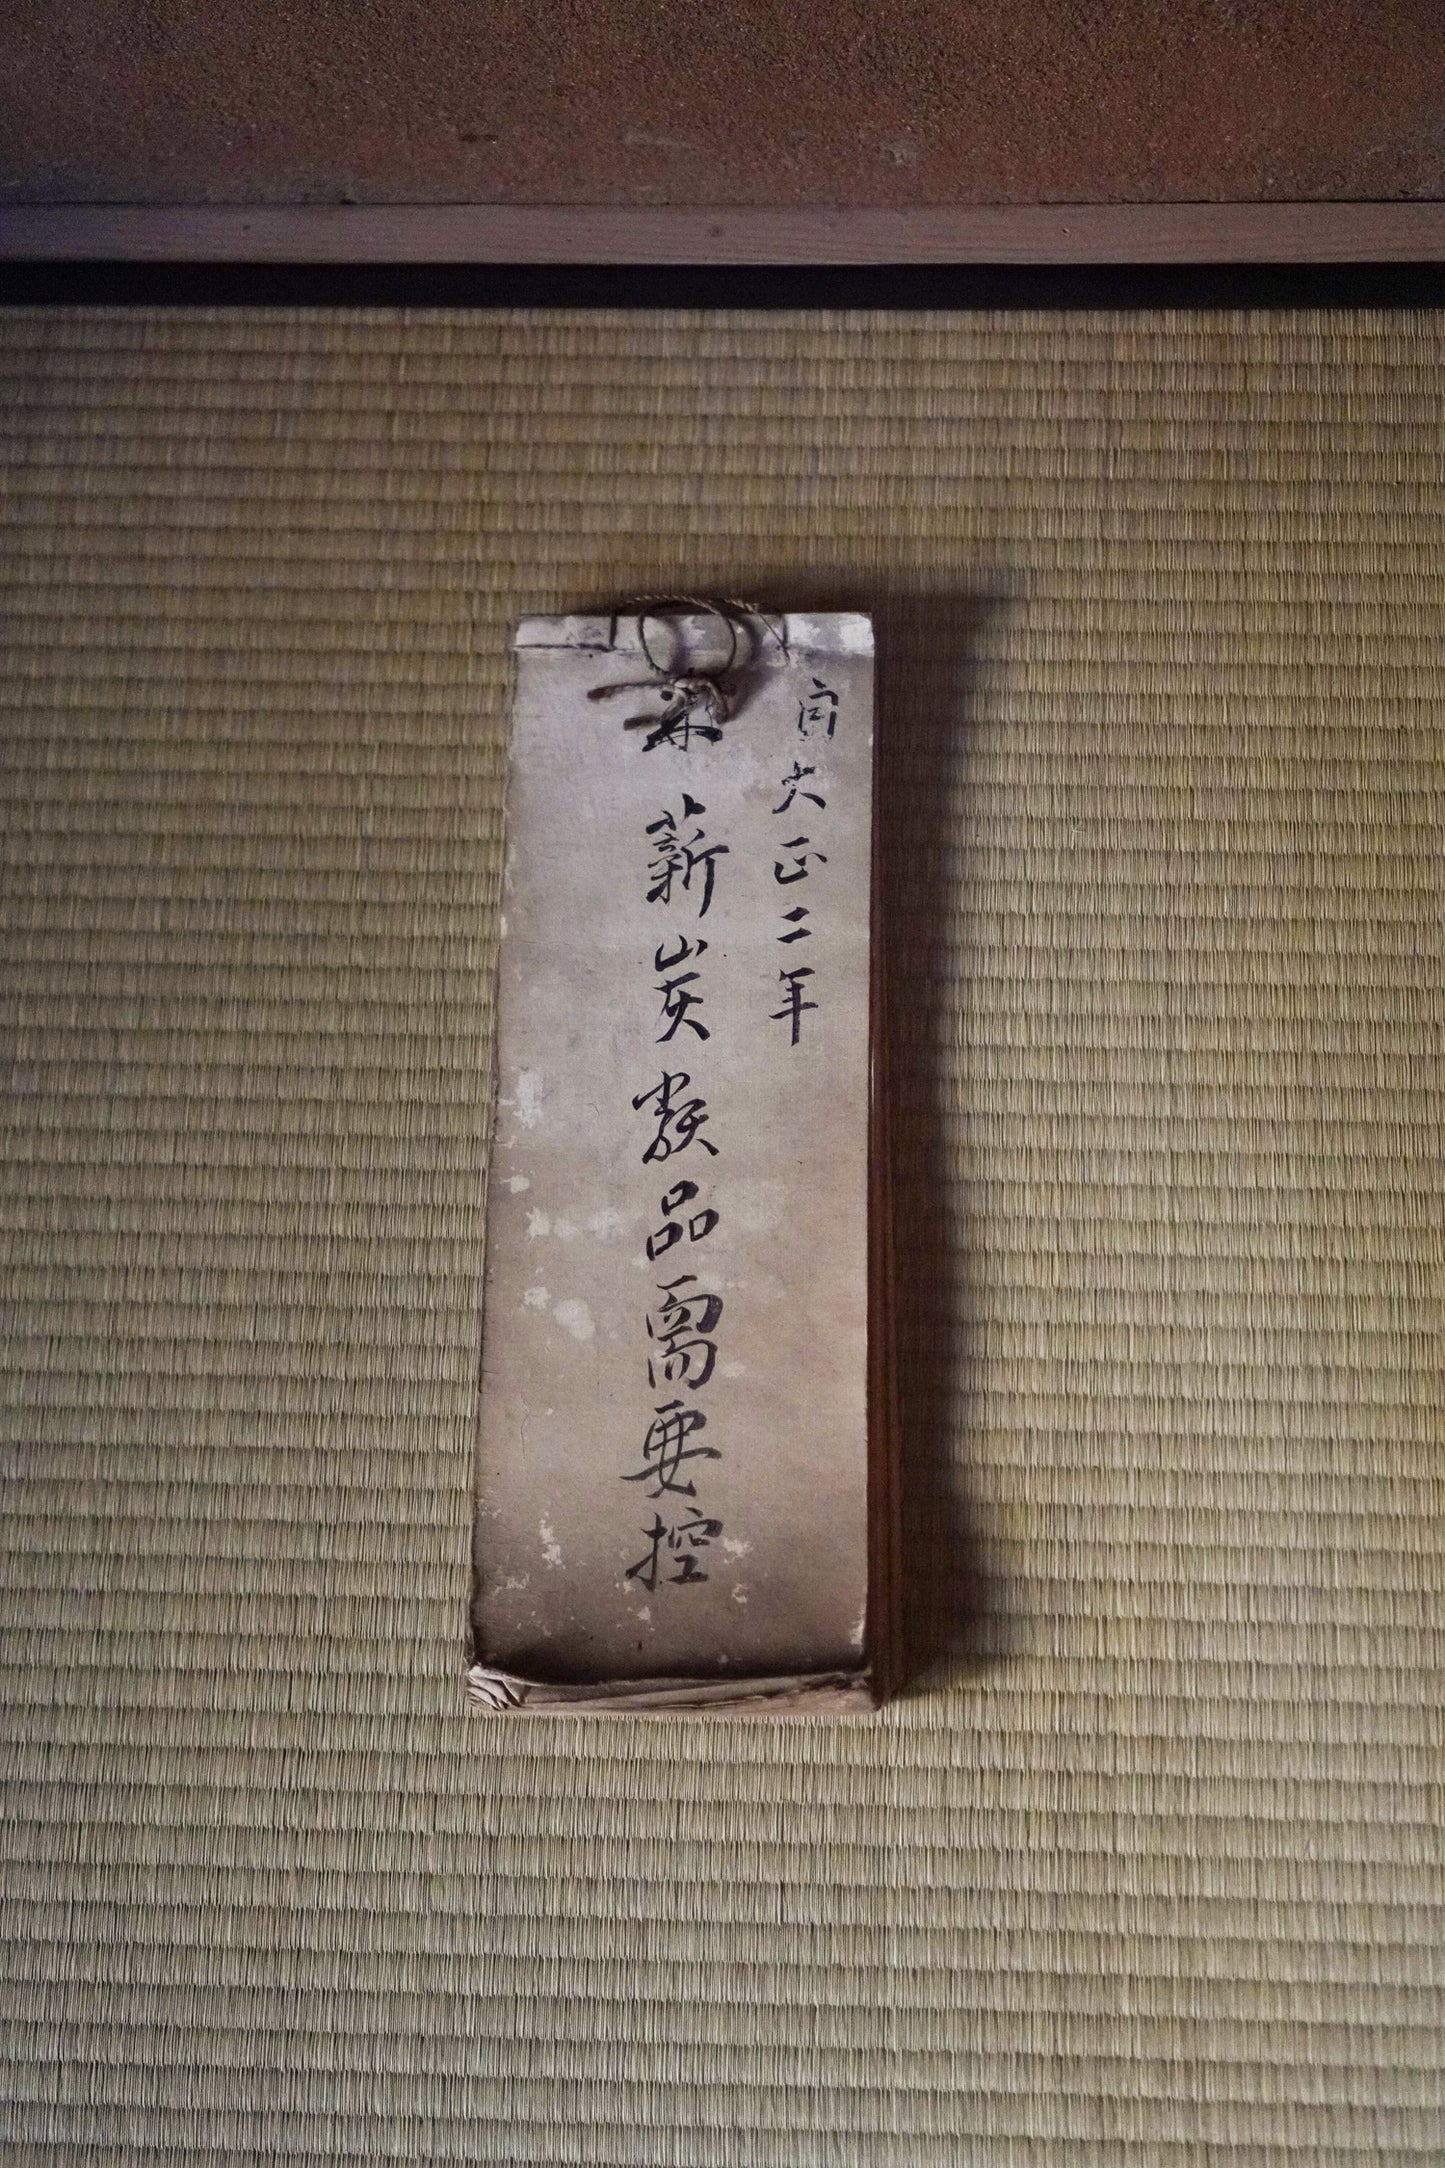 自大正二年
米薪炭数品需要控